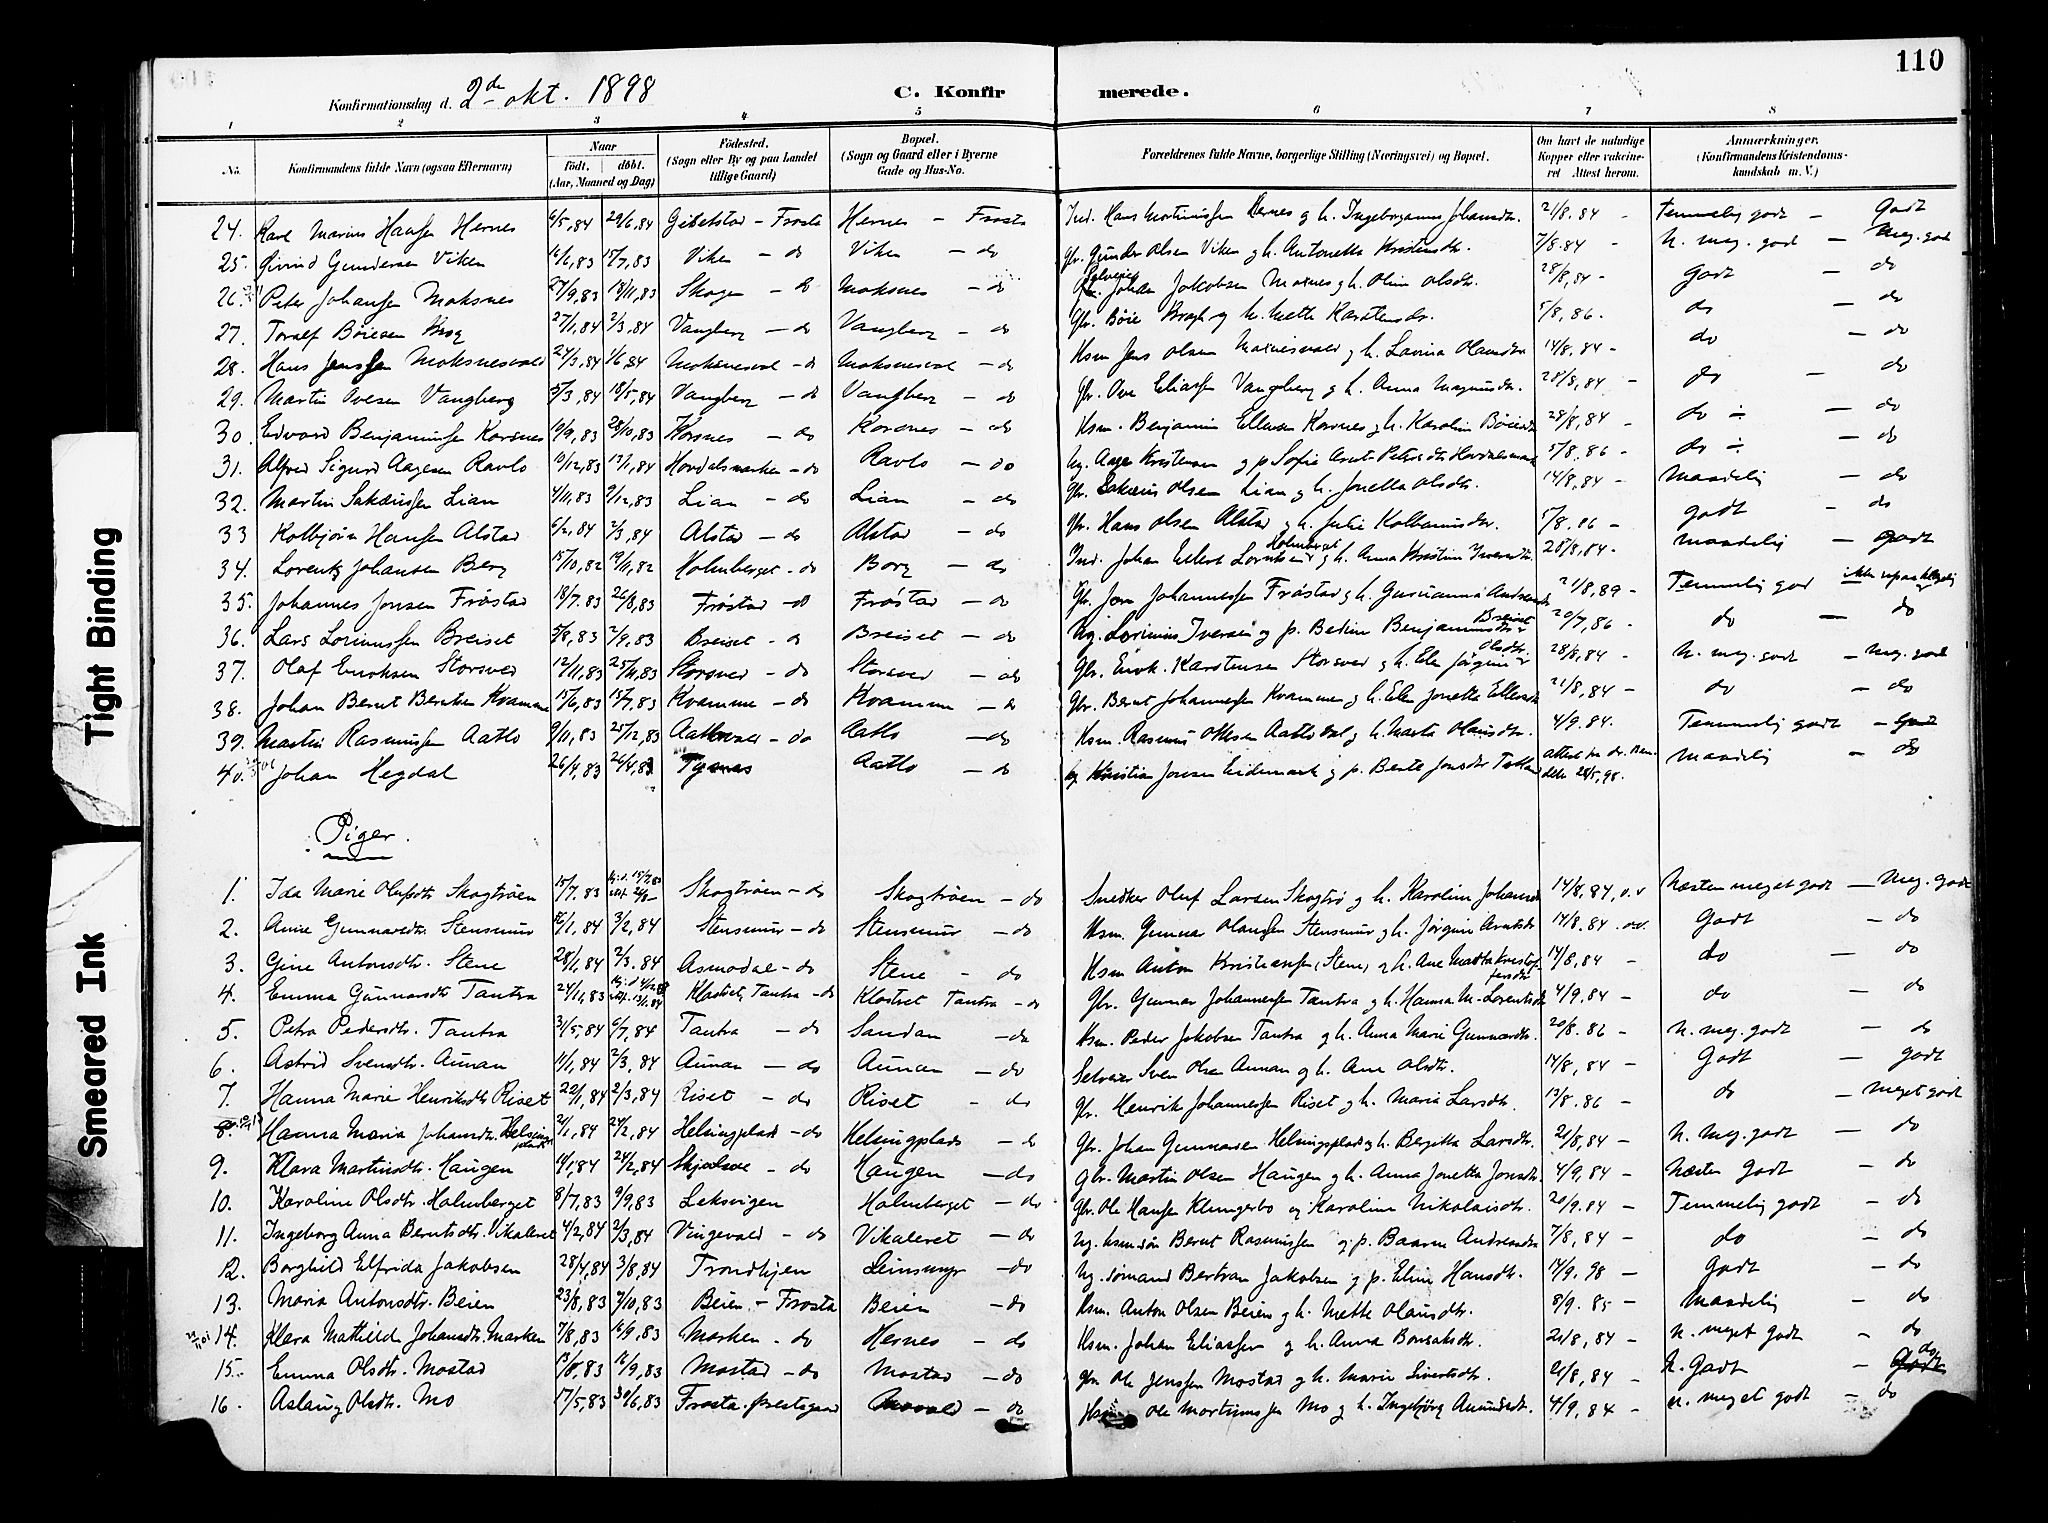 110
Konfirmationsdag d. 2de okt. 1898
C. Konfirmerede.
1 2 3 4 5 6 7 8
No. Konfirmandens fulde Navn (ogsaa Efternavn) Naar födt. döbt. (Aar, Maaned og Dag) Födested. (Sogn eller By og paa Landet tillige Gaard) Bopæl. (Sogn og Gaard eller i Byerne Gade og Hus-No. Forældrenes fulde Navne, borgerlige Stilling (Næringsvei) og Bopæl. Om havt de naturlige Kopper eller vaccineret Attest herom. Anmærkninger. (Konfirmandens Kristendomskundskab m. V.)
24. Karl Marius Hansen Hernes 6/5,84 29/6,84 Gibelstad - Frosta Hernes - Frosta Ind. Hans Martinussen Hernes og h. Ingeborganna Johansdtr. 21/8,84 - Temmelig godt - Godt
25. Eivind Gundersen Viken 17/7,83 Viken - do Viken - do Gbr. Gunder Olsen Viken og h. Antonetta Kristensdtr. 7/8.84 - N. meg. god - Meg. god
26. Peter Johansen Moksnes 27/9,83 18/11,83 Skogen - do Moksnes - do Selveier Johan Jakobsen Moksnes og h. Oline Olsdtr. 28/8,84 - godt - do
27. Toralf Böiesen Krog 27/1,84 2/3,84 Vangberg - do Vangberg - do Gbr. Böie Krogh og h. Mette Karstensdr. 5/8,86. do - do
28. Hans Jenssen Moksnesvald 24/3,84 1/6,84 Moksnesval - do Moksnesval - do Hsm Jens Olsen Moksnesvald og h. Lovina Olausdtr 14/8,84 - do - do
29. Martin Ovesen Vangberg 5/3,84 18/5,84 Vangberg - do Vangberg - do Gbr. Ove Eliassen Vangberg og h. Anna Magnusdtr. 28/8,84 - do - do
30. Edvard Benjaminsen Korsnes 10/9,83 28/10,83 Korsnes - do Korsnes - do Hsm. Benjamin Ellevsen Korsnes og h. Karoline Böiesdtr 28/8,84 - do - do
31. Alfred Sigurd Aagesen Ravlo 10/12,83 13/1,84 Hovdalsmarken - do Ravlo - do Ug. Aage Kristensen og p. Sofie Arnt Petersdtr Hovdalsmark 5/8.86 - do - do
32. Martin Sakæussen Lian 4/11,83 9/12,83 Lian - do Lian - do Gbr. Sakæus Olsen Lian og h. Jonetta Olsdtr. 14/8,84 - maadelig - do
33 Kolbjörn Hansen Alstad 6/2,84 2/3,84 Alstad - do Alstad - do Gbr. Hans Olsen Alstad og h. Julie Kolbanusdtr. 5/8.86 - godt - do
34. Lorentz Johansen Berg 15/10,82 19/11,82 Holmberget - do Borg - do Ind. Johan Edlert Lorentsen Holmberget og h. Anna Kristine Iversdtr. 28/8,84. - maadelig - godt
35. Johannes Jonsen Fröstad 18/7.83 26/8,83 Fröstad - do Fröstad - do Gbr. Jon Johannessen Fröstad og h. Gurianna Andreasdtr 21/8,89 - Temmelig god ikke upaaklagelig
36. Lars Loriunssen Breiset 5/8,83 2/9,83 Breiset - do Breiset - do Ug. Lorinius Iversen og p. Betine Benjaminsdtr Breiset 20/7,86 - do - do
37. Olaf Eriksen Storsved 12/11,83 25/11,83 Storsved - do Storsved - do Gbr. Erik Karstensen Storsved og h. Elen Jörgine Olsdtr. 28/8,84 - N. meg. godt - meg. godt
38. Johan Bernt Berntsen Kvamme 15/6,83 15/7,83 Kvamme - do Kvamme - do Gbr. Bernt Johannessen Kvamme og h. Elen Jonetta Ellevsdtr 21/8,84 - do - do
39. Martin Rasmussen Aatlo 9/11,83 25/12,83 Aatlovald - do Aatlo - do Hsm. Rasmus Olsen Aatloval og h. Marta Olausdtr. 4/9.84. Temmelig godt - god
40. Johan Hegdal 26/4,83 26/4,83 Aatlo - do Ug. Kristian Jonsen Eidemark og p. Berte Jonsdtr Attest fra dr. Bendeke 28/5,98. maadelig - do
Piger.
1. Ida Marie Olufsdtr. Skogtröen 15/7.83 Hj.d. 15/7,83 Skogtröen - do Skogtröen - do Snedker Oluf Larsen Skogtrö og h. Karoline Johansd 14/8,84, o.v Næsten meget godt - meg. godt
2. Anne Gunnarsdtr. Stensmur 16/1,84 3/2,84 Stensmur - do Stensmur - do Hsm. Gunnar Olaussen Stensmur og h. Jörgine Arntsdtr 14/8.84 o.v. Godt - do
3. Gine Antonsdtr. Stene 28/1,84 2/3.84 Asmodal - do Stene - do Hsm Anton Kristiansen (Stene) og h. Ane Marta Kristoffersdtr 14/8,84 - do - do
4. Emma Gunnarsdtr Tautra 24/11,83 Klostret, Tautra - do Klostret Tautra - do Gbr. Gunnar Johannessen Tautra og h. Hanna M. Lorentsdtr 4/9,84 - do - do
5. Petra Pedersdtr. Tautra 31/5,84 6/7,84 Tautra - do Sandan - do Hsm. Peder Jakobsen Tautra og h. Anna Marie Gunnarsdtr. 20/8.86 - N. meg. godt - do
6. Astrid Svensdtr. Aunan 11/1,84 2/3,84 Aunan - do Aunan - do Selveier Sven Olsen Aunan og h. Ane Olsdtr. 14/8,84 - Godt - godt
7. Hanna Marie Henriksdtr Riset 22/1,84 2/3,84 Riset - do Riset - do Gbr. Henrik Johannessen Riset og h. Maria Larsdtr. 13/8.86 - do - meget godt
8. Hanna Maria Johansdtr. Helsingplads 2/1,84 24/2,84 Helsingplads - do Helsingplads - do Gbr. Johan Gunnarsen Helsingplads og h. Bergitta Larsdtr. 21/8,84 - N. meg. godt - do
9. Klara Martinsdtr. Haugen 11/1,84 24/2,84 Skjælvoe - do Haugen - do Gbr. Martin Olsen Haugen og h. Anna Jonetta Jonsdtr. 4/9,84 - Næsten Godt - do
10. Karoline Olsdtr. Holmberget 8/7,83 9/9,83 Leksvigen Holmberget - do Gbr. Ole Hansen Klungerbo og Karoline Nikolaisdtr. 20/9.84 - Temmelig godt - do
11. Ingeborg Anna Berntsdtr. Vikaleret 4/2,84 2/3,84 Vingevald - do Vikaleret - do Ug. Bernt Rasmussen og p. Andreasdtr 7/8,84 - do - do
12. Borghild Elfrida Jakobsen 28/4,84 3/8,84 Trondhjem Leinsmyr - do Ug. sömand Bertran Jakobsen og p. Eline Hansdtr. 14/9.98 - Godt - do
13. Maria Antonsdtr. Beien 23/8,83 7/10,83 Beien - Frosta Beien - do Hsm. Anton Olsen Beien og h. Mette Olausdtr. 8/9.85 - Maadelig - do
14. Klara Mathilde Johansdtr. Marken 7/8,83 16/9.83 Marken - do Hernes - do Hsm. Johan Eliassen og h. Anna Bonsaksdtr. 21/8,84 - N. meget godt - do
15. Emma Olsdtr. Mostad 13/8,83 16/9,83 Mostad - do Mostad - do Gbr Ole Jenssen Mostad og h. Marie Sivertsdtr. 21/8,84 - N. Godt - do
16. Aslaug Olsdtr. Mo 17/5,83 30/6,83 Frosta prestegaard Movald - do Hsm Ole Martinussen Mo og h. Ingebjörg Amundsdtr. 4/9,84 - n. meget godt - do
Tight Binding
Smeared Ink